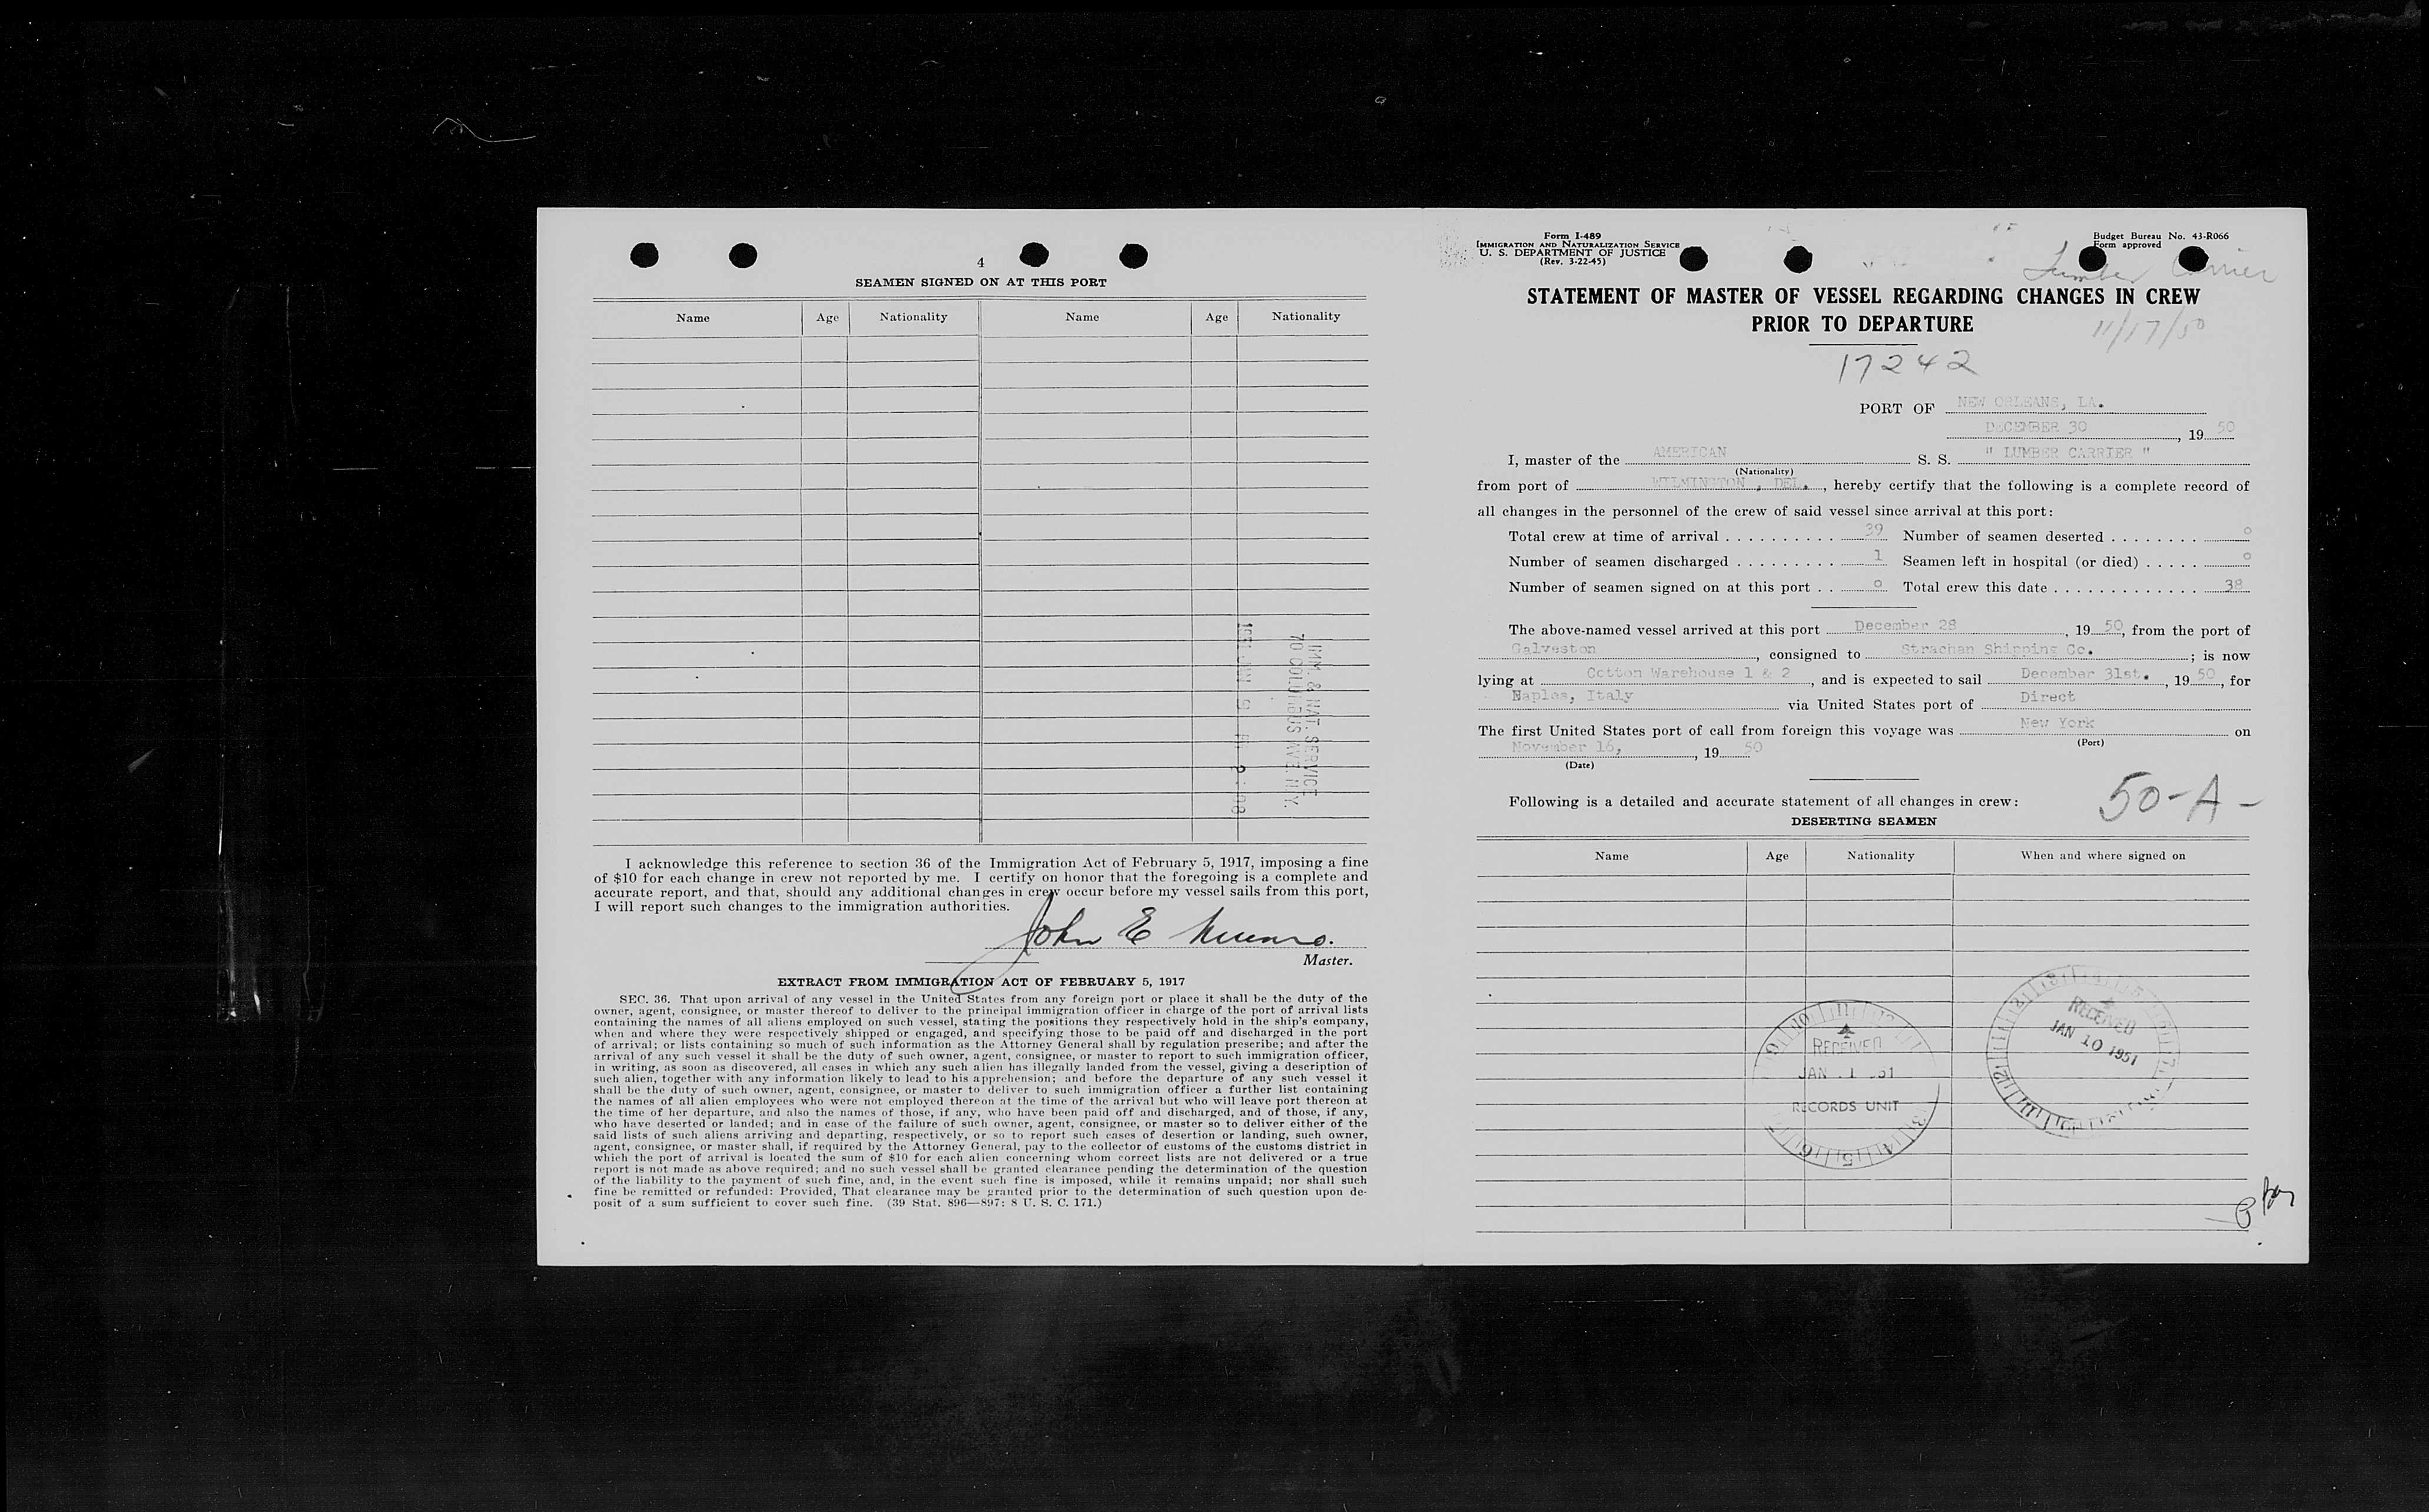 4
SEAMEN SIGNED ON AT THIS PORT
Name Age Nationality Name Age Nationality
IMM. & NAT. SERVICE
70 COLUMBUS AVE. N.Y.
I acknowledge this reference to section 36 of the Immigration Act of February 5, 1917, imposing a fine
of $10 for each change in crew not reported by me. I certify on honor that the foregoing is a complete and
accurate report, and that, should any additional changes in crew occur before my vessel sails from this port,
I will report such changes to the immigration authorities.
John E Munro.
Master.
EXTRACT FROM IMMIGRATION ACT OF FEBRUARY 5, 1917
SEC. 36. That upon arrival of any vessel in the United States from any foreign port or place it shall be the duty of the
owner, agent, consignee, or master thereof to deliver to the principal immigration officer in charge of the port of arrival lists
containing the names of all aliens employed on such vessel, stating the positions they respectively hold in the ship's company,
when and where they were respectively shipped or engaged, and specifying those to be paid off and discharged in the port
of arrival; or lists containing so much of such information as the Attorney General shall by regulation prescribe; and after the
arrival of any such vessel it shall be the duty of such owner, agent, consignee, or master to report to such immigration officer,
in writing, as soon as discovered, all cases in which any such alien has illegally landed from the vessel, giving a description of
such alien, together with any information likely to lead to his apprehension; and before the departure of any such vessel it
shall be the duty of such owner, agent, consignee, or master to deliver to such immigration officer a further list containing
the names of all alien employees who were not employed thereon at the time of the arrival but who will leave port thereon at
the time of her departure, and also the names of those, if any, who have been paid off and discharged, and of those, if any,
who have deserted or landed; and in case of the failure of such owner, agent, consignee, or master so to deliver either of the
said lists of such aliens arriving and departing, respectively, or so to report such cases of desertion or landing, such owner,
agent, consignee, or master shall, if required by the Attorney General, pay to the collector of customs of the customs district in
which the port of arrival is located the sum of $10 for each alien concerning whom correct lists are not delivered or a true
report is not made as above required; and no such vessel shall be granted clearance pending the determination of the question
of the liability to the payment of such fine, and, in the event such fine is imposed, while it remains unpaid; nor shall such
fine be remitted or refunded: Provided, That clearance may be granted prior to the determination of such question upon de-
posit of a sum sufficient to cover such fine. (39 Stat. 896—897; 8 U. S. C. 171.)
Form I-489
IMMIGRATION AND NATURALIZATION SERVICE
U. S. DEPARTMENT OF JUSTICE
(Rev. 3-22-45)
Budget Bureau No. 43-R066
Form approved
Lumber Carrier
STATEMENT OF MASTER OF VESSEL REGARDING CHANGES IN CREW
PRIOR TO DEPARTURE
11/17/50
17242
PORT OF NEW ORLEANS, LA.
DECEMBER 30, 1950
I, master of the AMERICAN S. S. " LUMBER CARRIER "
(Nationality)
from port of WILMINGTON , DEL., hereby certify that the following is a complete record of
all changes in the personnel of the crew of said vessel since arrival at this port:
Total crew at time of arrival 39 Number of seamen deserted 0
Number of seamen discharged 1 Seamen left in hospital (or died) 0
Number of seamen signed on at this port 0 Total crew this date 38
The above-named vessel arrived at this port December 28, 1950, from the port of
Galveston, consigned to Strachan Shipping Co.; is now
lying at Cotton Warehouse 1 & 2, and is expected to sail December 31st., 1950, for
Naples, Italy via United States port of Direct
The first United States port of call from foreign this voyage was New York on
(Port)
November 16,, 1950
(Date)
50-A-
Following is a detailed and accurate statement of all changes in crew:
DESERTING SEAMEN
Name Age Nationality When and where signed on
RECEIVED
JAN 10 1951
RECEIVED
RECORDS UNIT